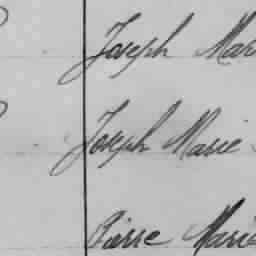 Joseph Mar
Joseph Marie
Pierre Marie